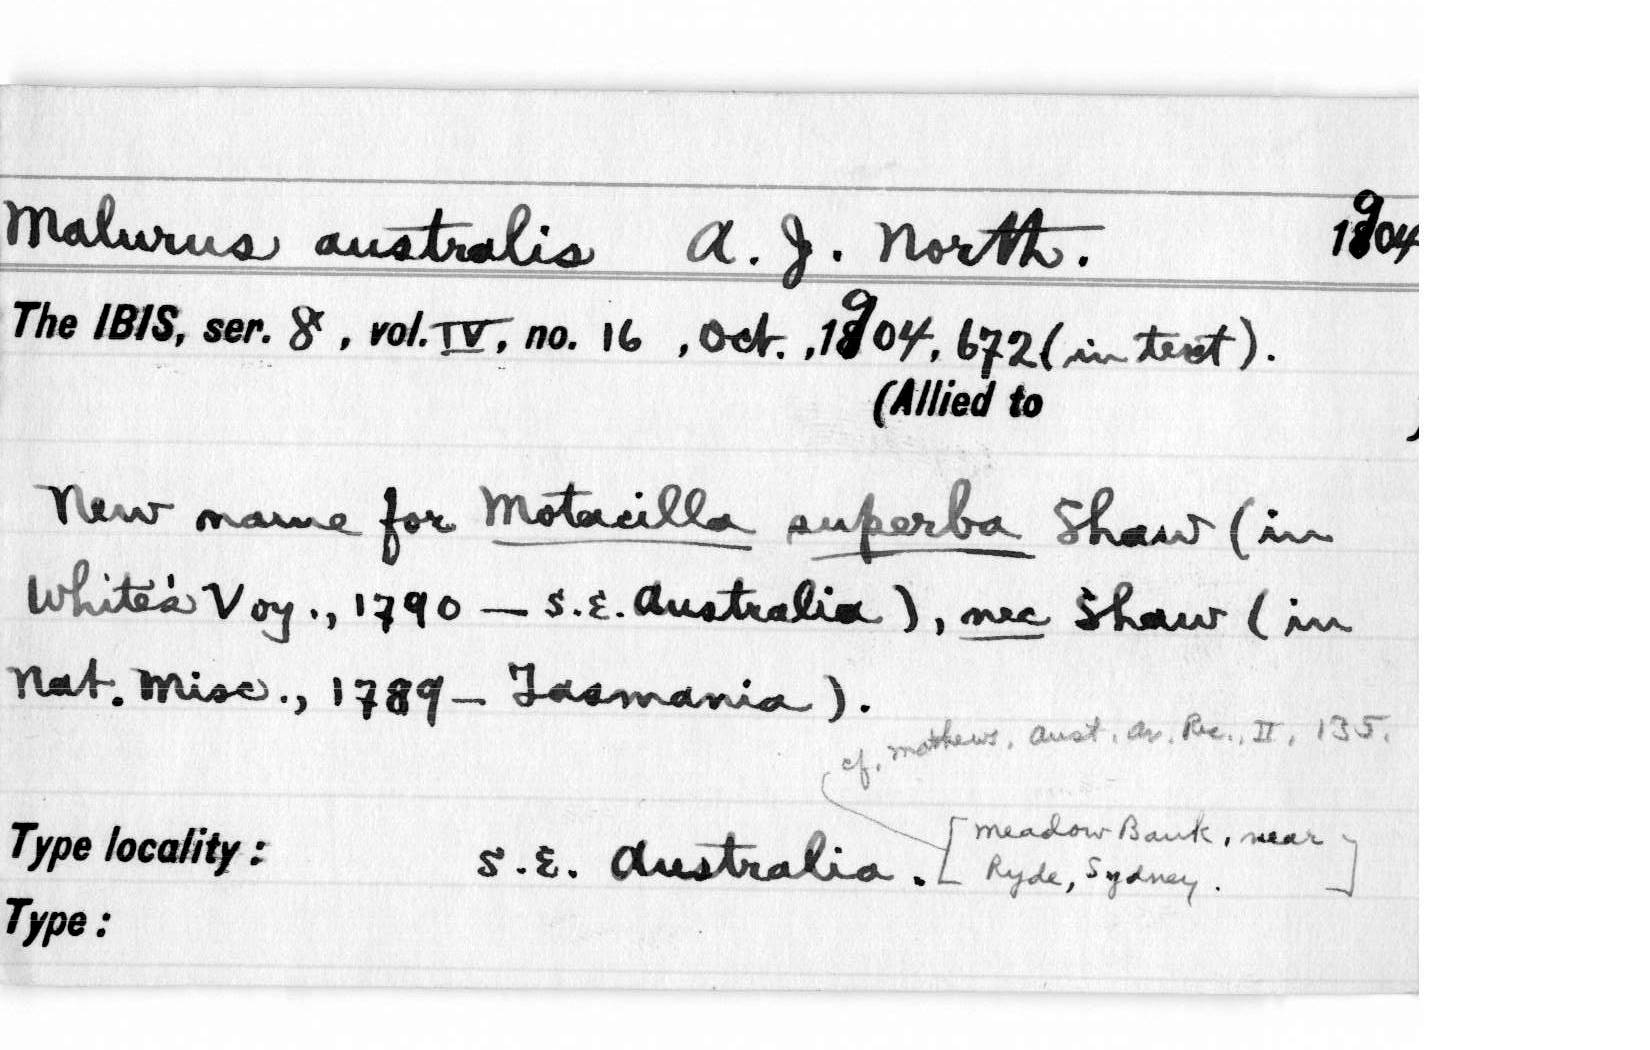 Malurus australis A. J. North. 1904
The IBIS, ser. 8, vol. IV, no. 16, Oct., 1904, 672 (in text).
(Allied to )
New name for Motacilla superba Shaw (in
White's Voy., 1790 — S.E. Australia), nec Shaw (in
Nat. Misc., 1789 — Tasmania).
cf. Mathews, Aust. Av. Rec., II, 135.
Type locality: S.E. Australia. [Meadow Bank, near
Ryde, Sydney.]
Type: